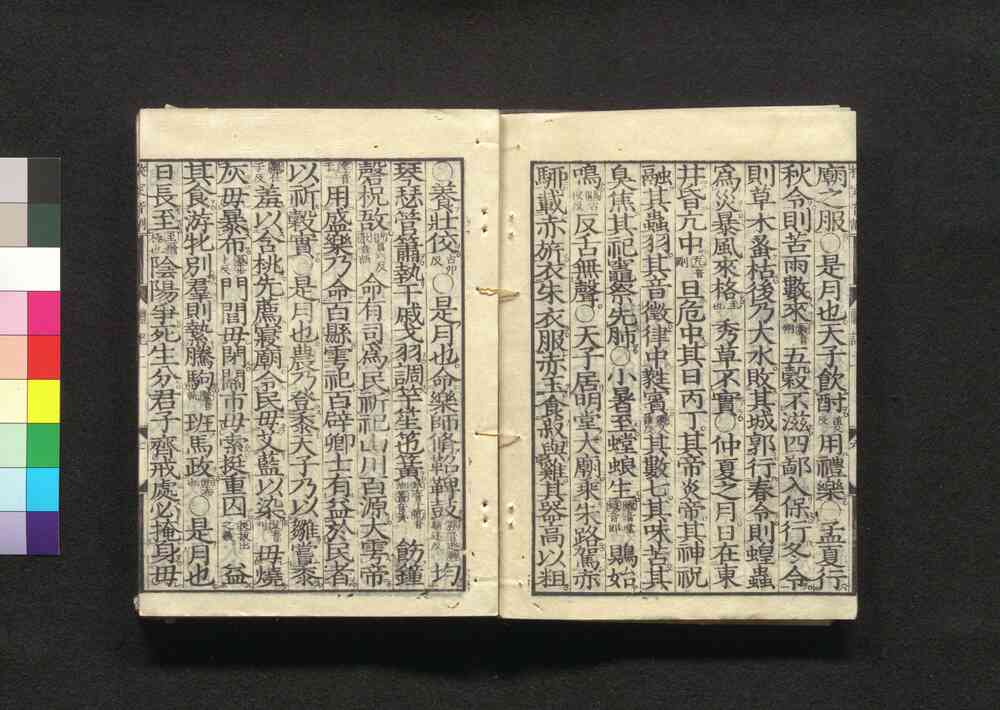 廟之服○是月也天子飲酎用禮樂○孟夏行
秋令則苦雨數來五穀不滋四鄙入保行冬令
則草木蚤枯後乃大水敗其城郭行春令則蝗蟲
爲災暴風來格秀草不實○仲夏之月日在東
井昏亢中旦危中其日丙丁其帝炎帝其神祝
融其蟲羽其音徵律中蕤賓其數七其味苦其
臭焦其祀竈祭先肺○小暑至螳蜋生鵙始
鳴反舌無聲○天子居明堂大廟乘朱路駕赤
駵載赤旂衣朱衣服赤玉食菽與雞其器高以粗
○養壯佼○是月也命樂師脩鞀鞞鼓均
琴瑟管簫執干戚戈羽調竽笙箎簧飭鐘
磬柷敔命有司爲民祈祀山川百源大雩帝
用盛樂乃命百縣雩祀百辟卿士有益於民者
以祈穀實○是月也農乃登黍天子乃以雛嘗黍
羞以含桃先薦寢廟令民毋艾藍以染毋燒
灰毋暴布門閭毋閉關市毋索挺重囚益
其食游牝別羣則縶騰駒班馬政○是月也
日長至陰陽爭死生分君子齊戒處必掩身毋